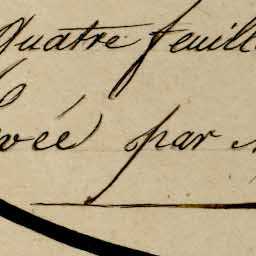 quatre feuill
vée par